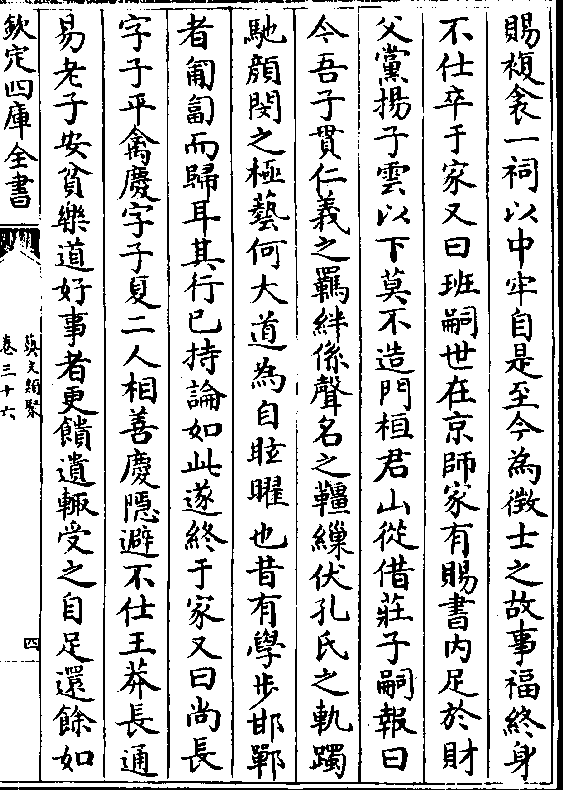 賜複衾一祠以中牢自是至今為徵士之故事福終身
不仕卒于家又曰班嗣世在京師家有賜書内足於財
父黨揚子雲以下莫不造門桓君山從借莊子嗣報曰
今吾子貫仁義之羈絆係聲名之韁繅伏孔氏之軌躅
馳顔閔之極藝何大道為自眩曜也昔有學歩邯鄲
者匍匐而歸耳其行已持論如此遂終于家又曰尚長
字子平禽慶字子夏二人相善慶隱避不仕王莽長通
易老子安貧樂道好事者更饋遺輙受之自足還餘如
欽定四庫全書
藝文類聚
卷三十六
四